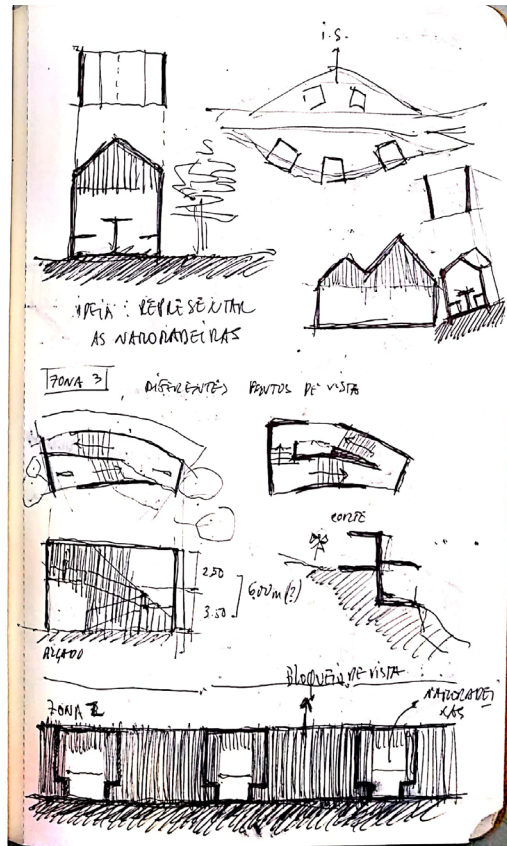 i.s.
IDEIA : REPRESENTAR
AS NAMORADEIRAS
ZONA 3
DIFERENTES PONTOS DE VISTA
CORTE
2.50
3.50
6.00m (?)
ALÇADO
BLOQUEIO DE VISTA
ZONA
NAMORADEI
RAS